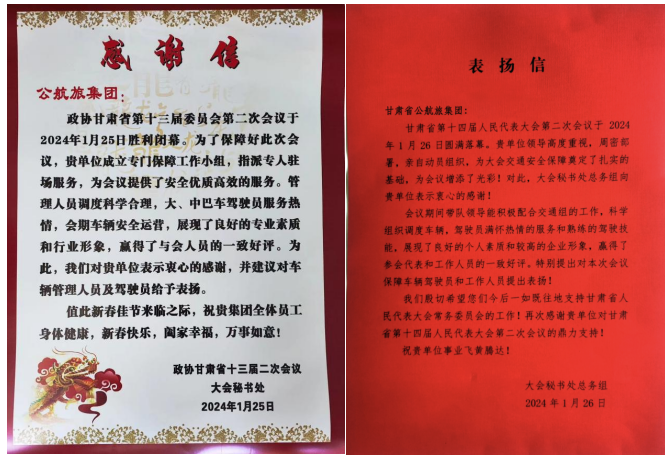 感谢信
公航旅集团：
政协甘肃省第十三届委员会第二次会议于
2024年1月25日胜利闭幕。为了保障好此次会
议，贵单位成立专门保障工作小组，指派专人驻
场服务，为会议提供了安全优质高效的服务。管
理人员调度科学合理，大、中巴车驾驶员服务热
情，会期车辆安全运营，展现了良好的专业素质
和行业形象，赢得了与会人员的一致好评。为
此，我们对贵单位表示衷心的感谢，并建议对车
辆管理人员及驾驶员给于表扬。
值此新春佳节来临之际，祝贵集团全体员工
身体健康，新春快乐，阖家幸福，万事如意！
政协甘肃省十三届二次会议
大会秘书处
2024年1月25日
表扬信
甘肃省公航旅集团：
甘肃省第十四届人民代表大会第二次会议于 2024
年 1 月 26 日圆满落幕。贵单位领导高度重视，周密部
署，亲自动员组织，为大会交通安全保障奠定了扎实的
基础，为会议增添了光彩！对此，大会秘书处总务组向
贵单位表示衷心的感谢！
会议期间带队领导能积极配合交通组的工作，科学
组织调度车辆，驾驶员满怀热情的服务和熟练的驾驶技
能，展现了良好的个人素质和较高的企业形象，赢得了
参会代表和工作人员的一致好评。特别提出对本次会议
保障车辆驾驶员和工作人员提出表扬！
我们殷切希望您们今后一如既往地支持甘肃省人
民代表大会常务委员会的工作！再次感谢贵单位对甘肃
省第十四届人民代表大会第二次会议的鼎力支持！
祝贵单位事业飞黄腾达！
大会秘书处总务组
2024 年 1 月 26 日